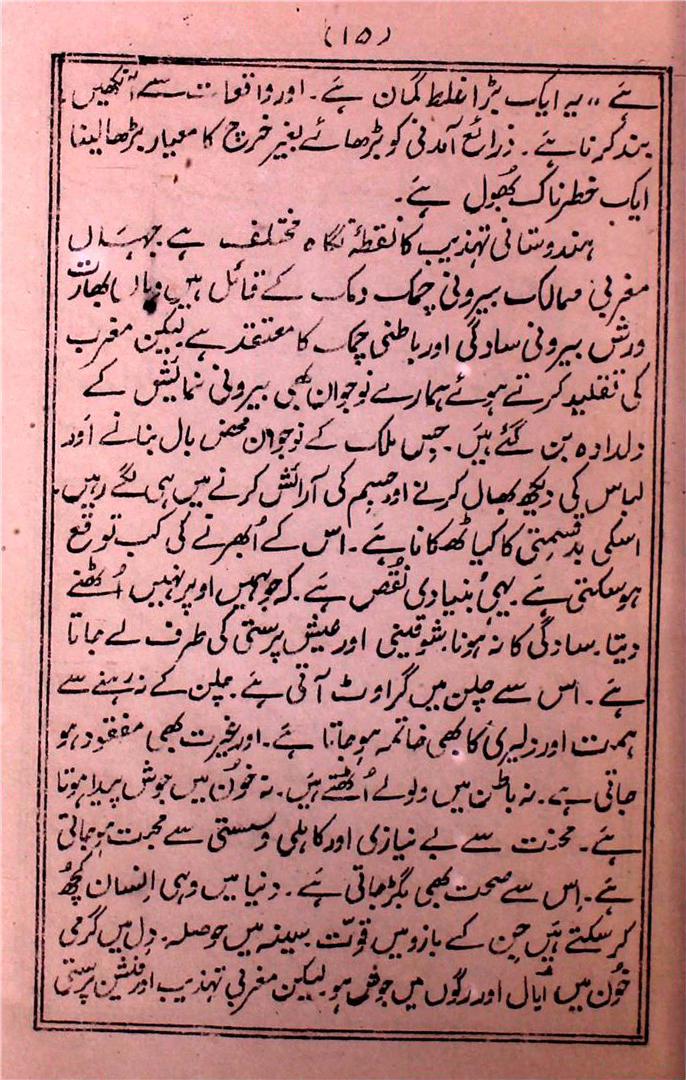 (۱۵)
ہے ،، یہ ایک بڑا غلط گمان ہے۔ اور واقعات سے آنکھیں
بند کرنا ہے۔ ذرائع آمدنی کو بڑھائے بغیر خرچ کا معیار بڑھا لینا
ایک خطرناک بھُول ہے۔
ہندوستانی تہذیب کا نقطۂ نگاہ مختلف ہے جہاں
مغربی ممالک بیرونی چمک دمک کے قائل ہیں وہاں بھارت
ورش بیرونی سادگی اور باطنی چمک کا معتقد ہے لیکن مغرب
کی تقلید کرتے ہوئے ہمارے نوجوان بھی بیرونی نمائش کے
دلدادہ بن گئے ہیں۔ جس ملک کے نوجوان محض بال بنانے اور
لباس کی دیکھ بھال کرنے اور جسم کی آرائش کرنے میں ہی لگے رہیں۔
اسکی بدقسمتی کا کیا ٹھکانا ہے۔ اس کے اُبھرنے کی کب توقع
ہو سکتی ہے یہی بُنیادی نُقص ہے۔ کہ جو ہمیں اوپر نہیں اُٹھنے
دیتا۔ سادگی کا نہ ہونا شوقینی اور عیش پرستی کی طرف لے جاتا
ہے۔ اس سے چلن میں گراوٹ آتی ہے۔ چلن کے نہ رہنے سے
ہمت اور دلیری کا بھی خاتمہ ہو جاتا ہے۔ اور غیرت بھی مفقود ہو
جاتی ہے۔ نہ باطن میں ولولے اُٹھتے ہیں۔ نہ خون میں جوش پیدا ہوتا
ہے۔ محنت سے بے نیازی اور کاہلی و سستی سے محبت ہو جاتی
ہے۔ اِس سے صحت بھی بگڑ جاتی ہے۔ دنیا میں وہی اِنسان کچھُ
کر سکتے ہیں جن کے بازو میں قوّت سینہ میں حوصلہ۔ دِل میں گرمی
خُون میں اُبال اور رگوں میں جوش ہو لیکن مغربی تہذیب اور فیشن پرستی